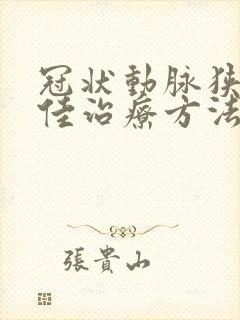 冠狀動脉狹
佳治療方法
張貴山